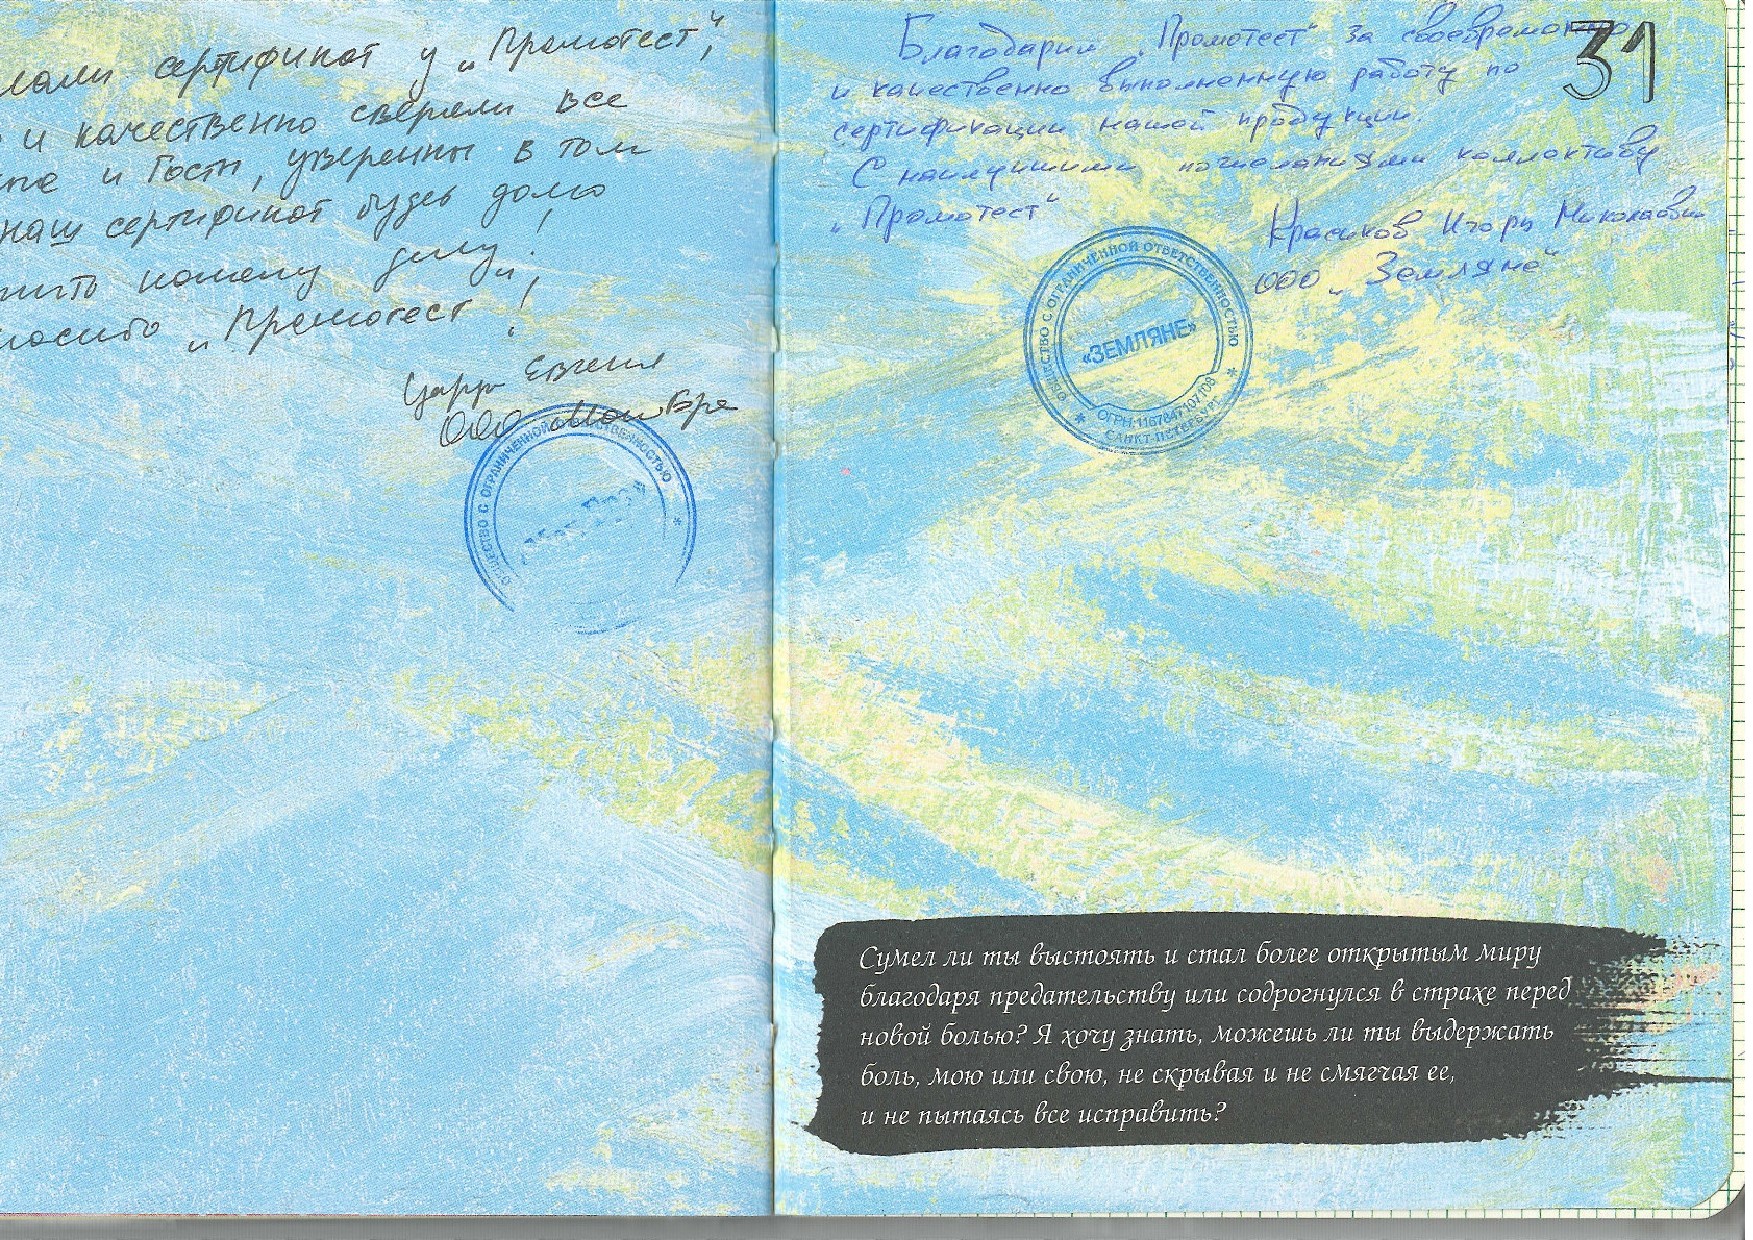 лали сертификат у „Промотест",
и качественно сверили все
и Госты, уверенны в том
наш сертификат будеь долго
нашему делу!
„Промотест"!
Царр Евгения
ООО
ОБЩЕСТВО С ОГРАНИЧЕННОЙ ОТВЕТСТВЕННОСТЬЮ
31
Благодарим „Промотест" за своевременно
и качественно выполненную работу по
сертификации нашей продукции.
С наилучшими пожеланиями коллективу
„Промотест"
Красиков Игорь Николаевич
ООО „Земляне"
ОБЩЕСТВО С ОГРАНИЧЕННОЙ ОТВЕТСТВЕННОСТЬЮ
«ЗЕМЛЯНЕ»
ОГРН 1167847107108
САНКТ-ПЕТЕРБУРГ
Сумел ли ты выстоять и стал более открытым миру
благодаря предательству или содрогнулся в страхе перед
новой болью? Я хочу знать, можешь ли ты выдержать
боль, мою или свою, не скрывая и не смягчая ее,
и не пытаясь все исправить?